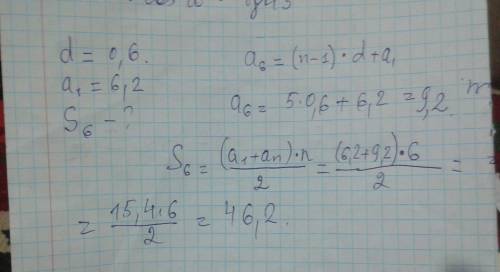 d = 0,6.
a₁ = 6,2
S₆ - ?
a₆ = (n-1)·d+a₁
a₆ = 5·0,6+6,2 = 9,2.
S₆ = (a₁+aₙ)·n / 2 = (6,2+9,2)·6 / 2 =
= 15,4·6 / 2 = 46,2.